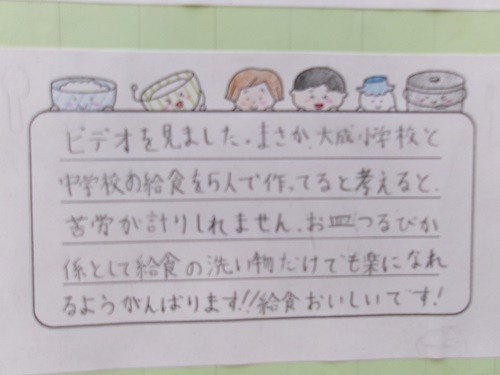 ビデオを見ました。まさか、大成小学校と
中学校の給食を5人で作ってると考えると、
苦労が計りしれません。お皿つるぴか
係として給食の洗い物だけでも楽になれ
るようがんばります!!給食おいしいです!